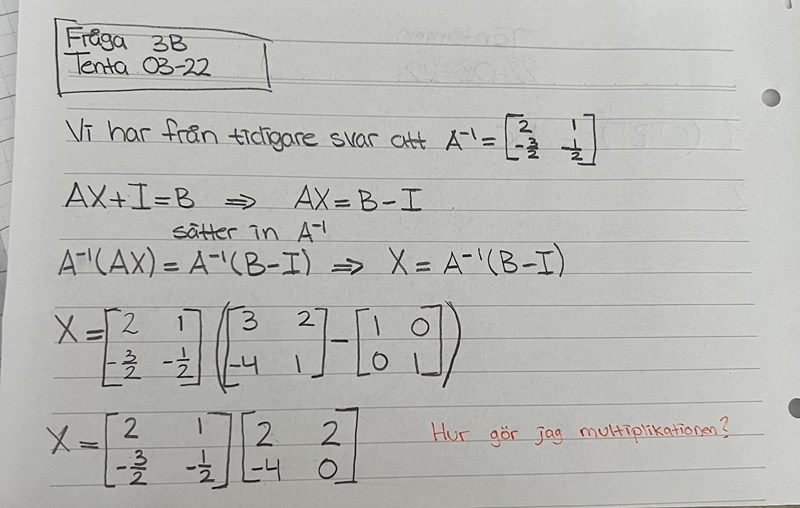 Fråga 3B
Tenta 03-22
Vi har från tidigare svar att A⁻¹ = [2 1; -3/2 -1/2]
AX+I=B ⇒ AX=B-I
sätter in A⁻¹
A⁻¹(AX) = A⁻¹(B-I) ⇒ X = A⁻¹(B-I)
X = [2 1; -3/2 -1/2] ([3 2; -4 1] - [1 0; 0 1])
X = [2 1; -3/2 -1/2] [2 2; -4 0] Hur gör jag multiplikationen?